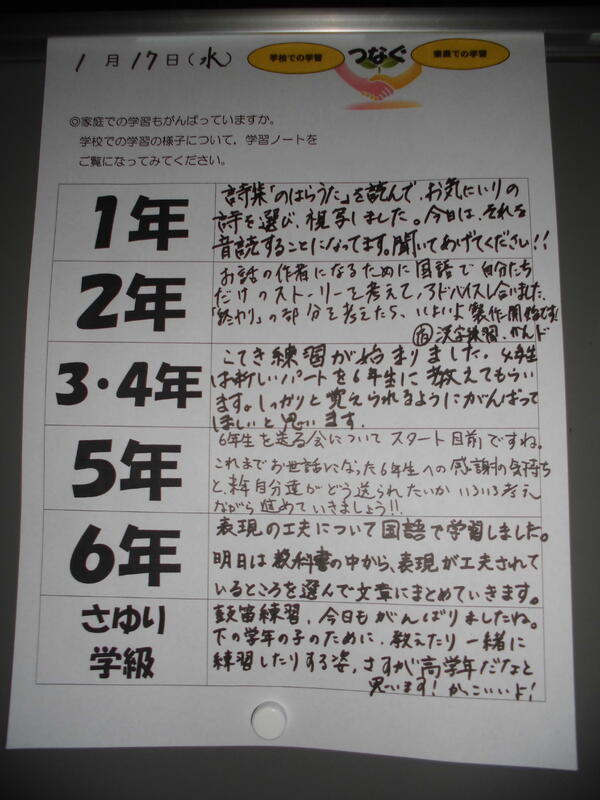 1月17日(水)
学校での学習 つなぐ 家庭での学習
◎家庭での学習もがんばっていますか。
学校での学習の様子について，学習ノートを
ご覧になってみてください。
1年
詩集「のはらうた」を読んで、お気にいりの
詩を選び、視写しました。今日は、それを
音読することになってます。聞いてあげてください!!
2年
お話の作者になるために国語で自分たち
だけのストーリーを考えて、アドバイスし合いました。
「終わり」の部分を考えたら、いよいよ製作開始です!
宿 漢字練習・かんド
3・4年
こてき練習が始まりました。4年生
は新しいパートを6年生に教えてもらい
ます。しっかりと覚えられるようにがんばって
ほしいと思います。
5年
6年生を送る会について スタート目前ですね。
これまでお世話になった6年生への感謝の気持ち
と、来年自分達がどう送られたいか いろいろ考え
ながら進めていきましょう!!
6年
表現の工夫について国語で学習しました。
明日は教科書の中から、表現が工夫されて
いるところを選んで文章にまとめていきます。
さゆり
学級
鼓笛練習、今日もがんばりましたね。
下の学年の子のために、教えたり一緒に
練習したりする姿、さすが高学年だなと
思います!かっこいいよ!